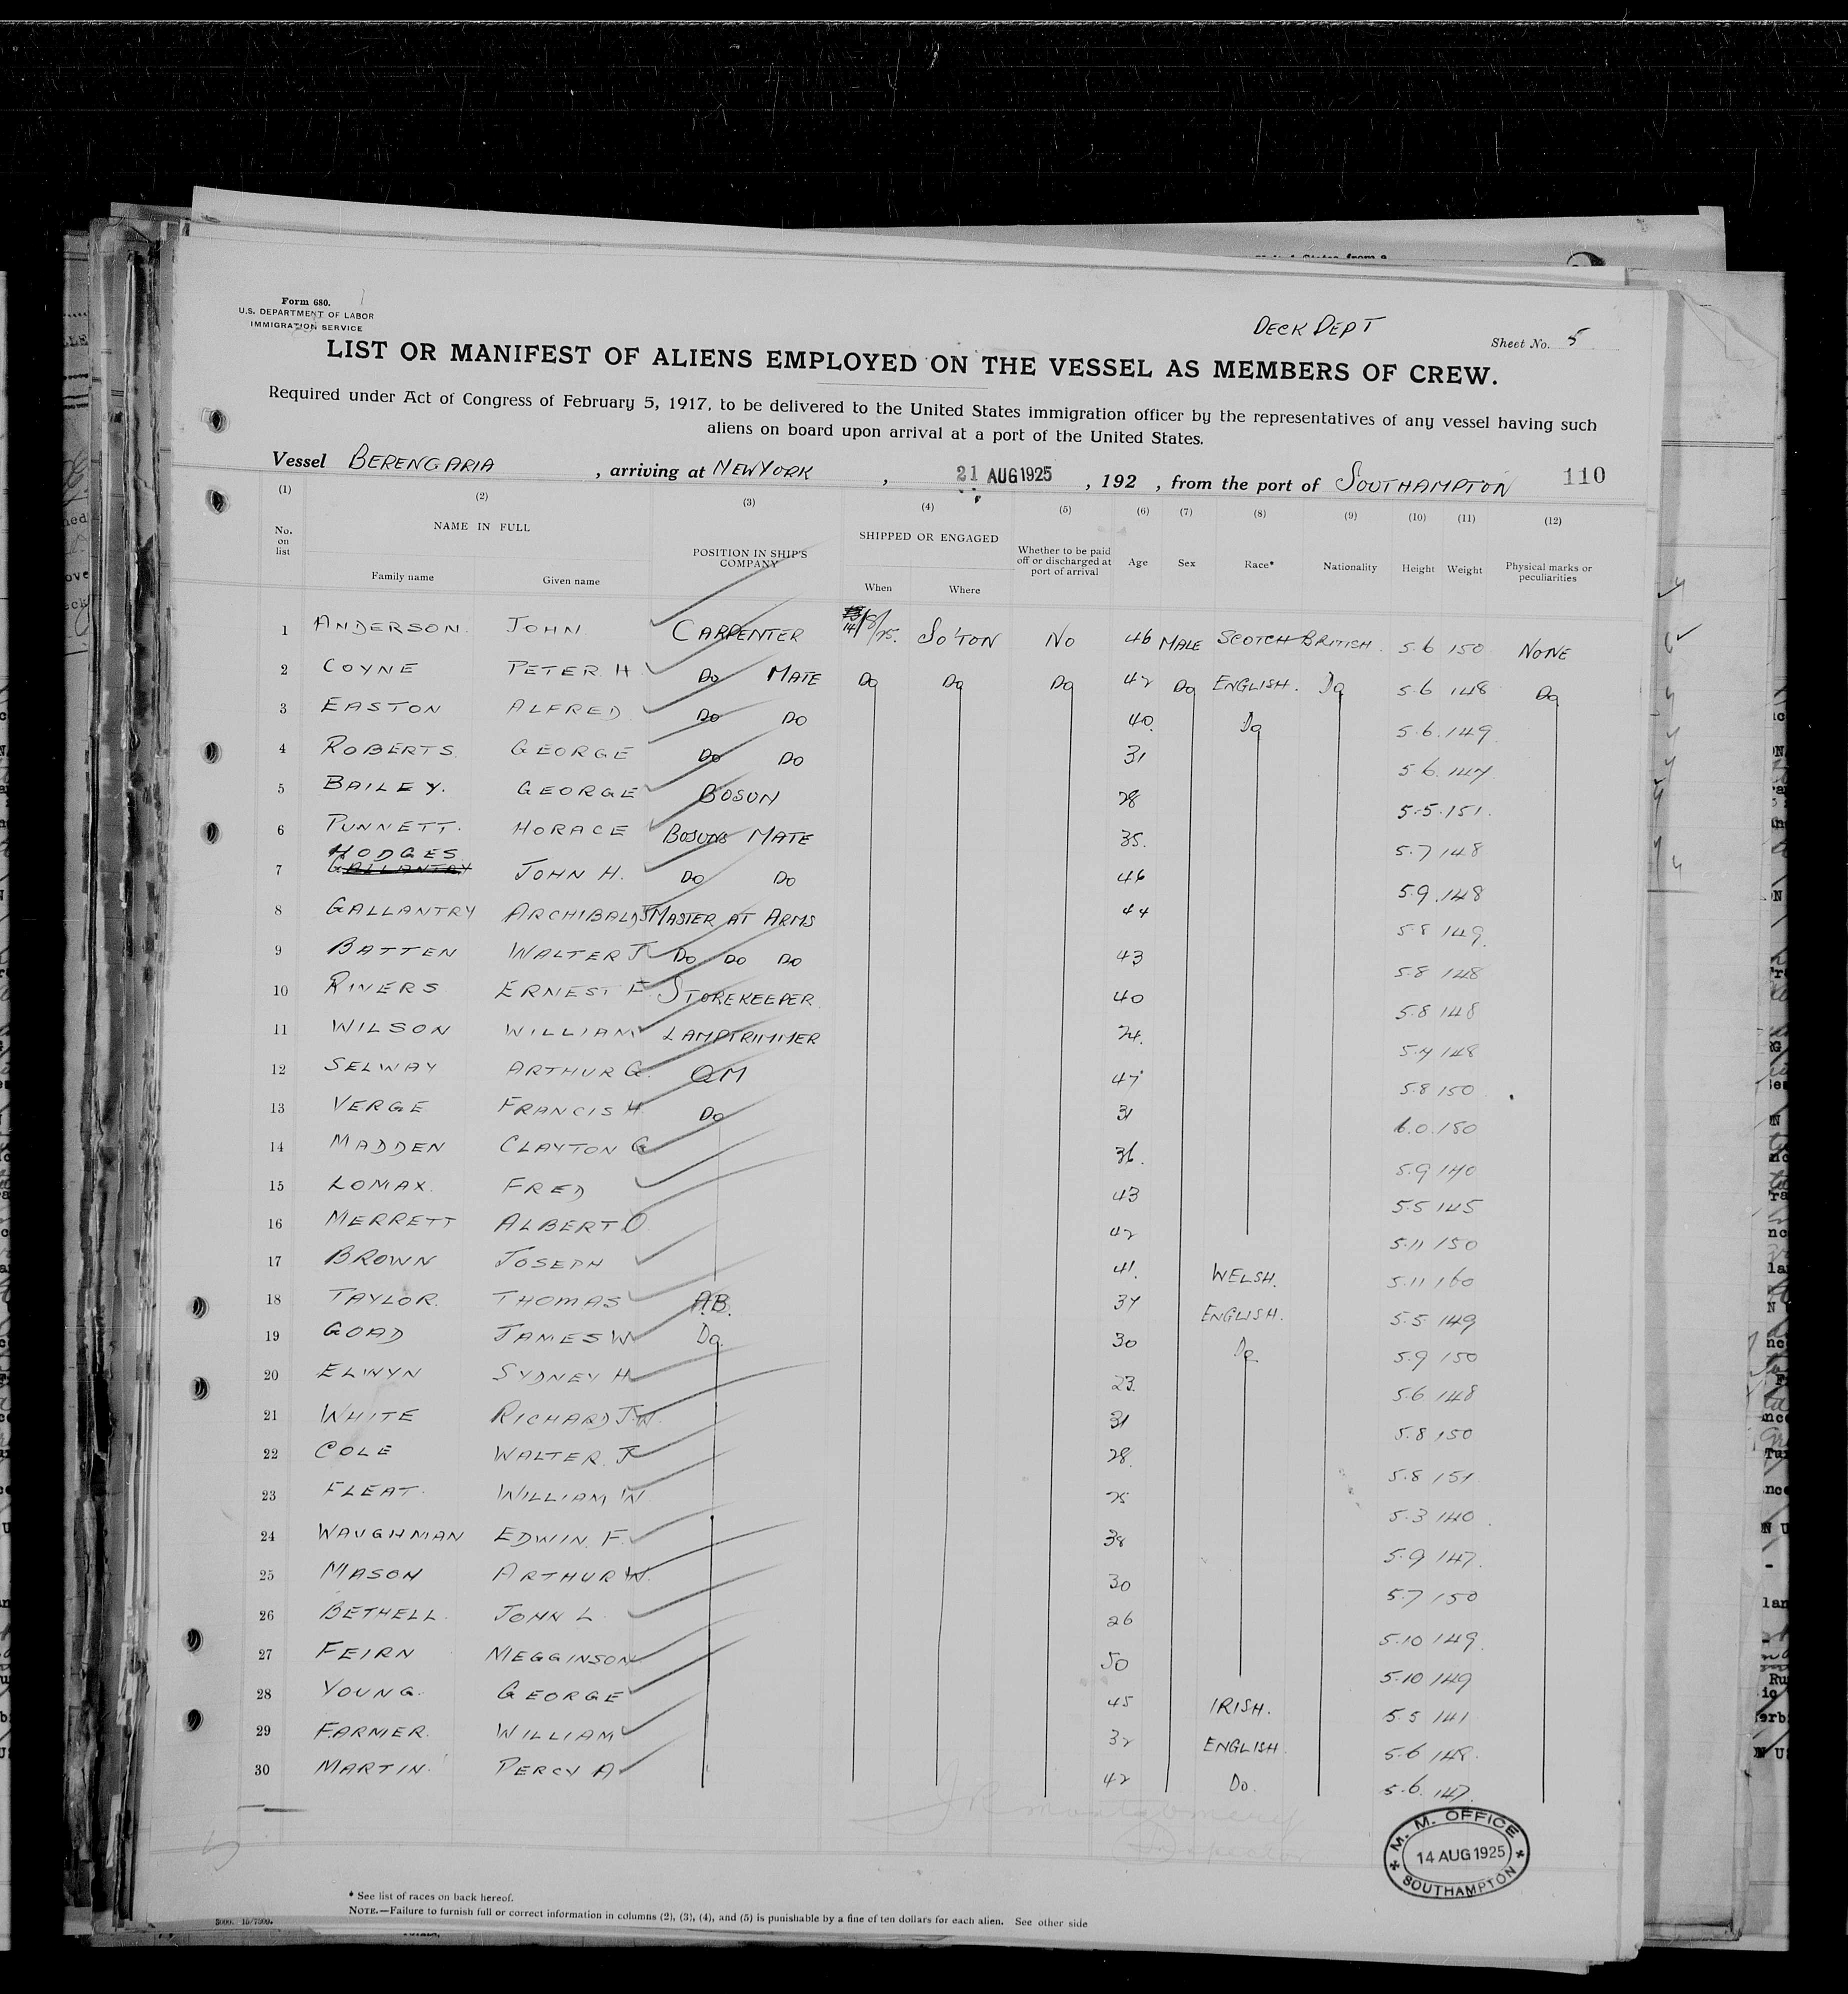 Form 680.
U.S. DEPARTMENT OF LABOR
IMMIGRATION SERVICE
DECK DEPT
Sheet No. 5
LIST OR MANIFEST OF ALIENS EMPLOYED ON THE VESSEL AS MEMBERS OF CREW.
Required under Act of Congress of February 5, 1917, to be delivered to the United States immigration officer by the representatives of any vessel having such
aliens on board upon arrival at a port of the United States.
Vessel BERENGARIA , arriving at NEW YORK , 21 AUG 1925 , 192 , from the port of SOUTHAMPTON 110
(1) (2) (3) (4) (5) (6) (7) (8) (9) (10) (11) (12)
No. on list NAME IN FULL POSITION IN SHIP'S COMPANY SHIPPED OR ENGAGED Whether to be paid off or discharged at port of arrival Age Sex Race* Nationality Height Weight Physical marks or peculiarities
Family name Given name When Where
1 ANDERSON. JOHN CARPENTER 14/8/25. SO'TON NO 46 MALE SCOTCH BRITISH. 5.6 150 NONE
2 COYNE PETER H Do MATE Do Do Do 42 Do ENGLISH. Do 5.6 148 Do
3 EASTON ALFRED Do Do 40. Do 5.6.149
4 ROBERTS. GEORGE Do Do 31 5.6.147
5 BAILEY. GEORGE BOSUN 28 5.5.151.
6 PUNNETT. HORACE BOSUNS MATE 35. 5.7 148
HODGES
7 GALLANTRY JOHN H. Do Do 46 5.9.148
8 GALLANTRY ARCHIBALD J MASTER AT ARMS 44 5.8 149.
9 BATTEN WALTER J Do Do Do 43 5.8 148
10 RIVERS ERNEST F. STOREKEEPER. 40 5.8 148
11 WILSON WILLIAM LAMPTRIMMER 24. 5.4 148
12 SELWAY ARTHUR G. QM 47 5.8 150
13 VERGE FRANCIS H. Do 31 6.0.150
14 MADDEN CLAYTON G 36. 5.9 140
15 LOMAX. FRED 43 5.5 145
16 MERRETT ALBERT O 42 5.11 150
17 BROWN JOSEPH 41. WELSH. 5.11 160
18 TAYLOR. THOMAS A.B. 37 ENGLISH. 5.5 149
19 GOAD JAMES W Do 30 Do 5.9 150
20 ELWYN SYDNEY H 23. 5.6 148
21 WHITE RICHARD J.W. 31 5.8 150
22 COLE WALTER. J 28. 5.8 151
23 FLEAT. WILLIAM W 25 5.3 140
24 WAUGHMAN EDWIN. F. 38 5.9 147.
25 MASON ARTHUR W. 30 5.7 150
26 BETHELL. JOHN L 26 5.10 149.
27 FEIRN MEGGINSON 50 5.10 149
28 YOUNG. GEORGE 45 IRISH. 5.5 141
29 FARMER. WILLIAM 32 ENGLISH. 5.6 148.
30 MARTIN. PERCY A 42 Do. 5.6. 147.
J R Montgomery
Inspector
M. M. OFFICE
14 AUG 1925
SOUTHAMPTON
* See list of races on back hereof.
NOTE.—Failure to furnish full or correct information in columns (2), (3), (4), and (5) is punishable by a fine of ten dollars for each alien. See other side